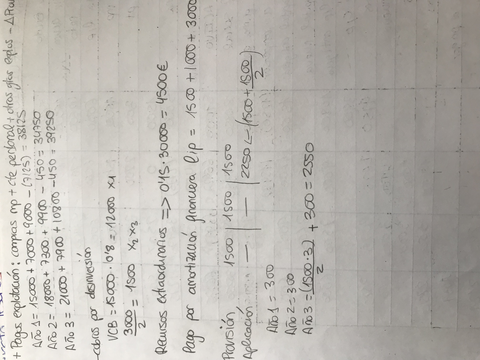 + Pagos explotación: compras mp + cte personal + otros gtos explot - Δ
Año 1 = 15000 + 7000 + 9000 - (7125) = 38125
Año 2 = 18000 + 7300 + 9900 - 450 = 34750
Año 3 = 21000 + 7900 + 10800 - 450 = 39250
-cobros por desinversión
VCB = 15000 · 0'8 = 12000 x1
3000/2 = 1500 x2 x3
Recursos extraordinarios => 0'15 · 30000 = 4500€
Pago por amortización financiera l.i.p = 1500 + 1000 + 3000
Previsión 1500 | 1500 | 1500
Aplicación — | — | 2250 <= (1500 + 1500/2)
Año 1 = 300
Año 2 = 300
Año 3 = (1500·3)/2 + 300 = 2550